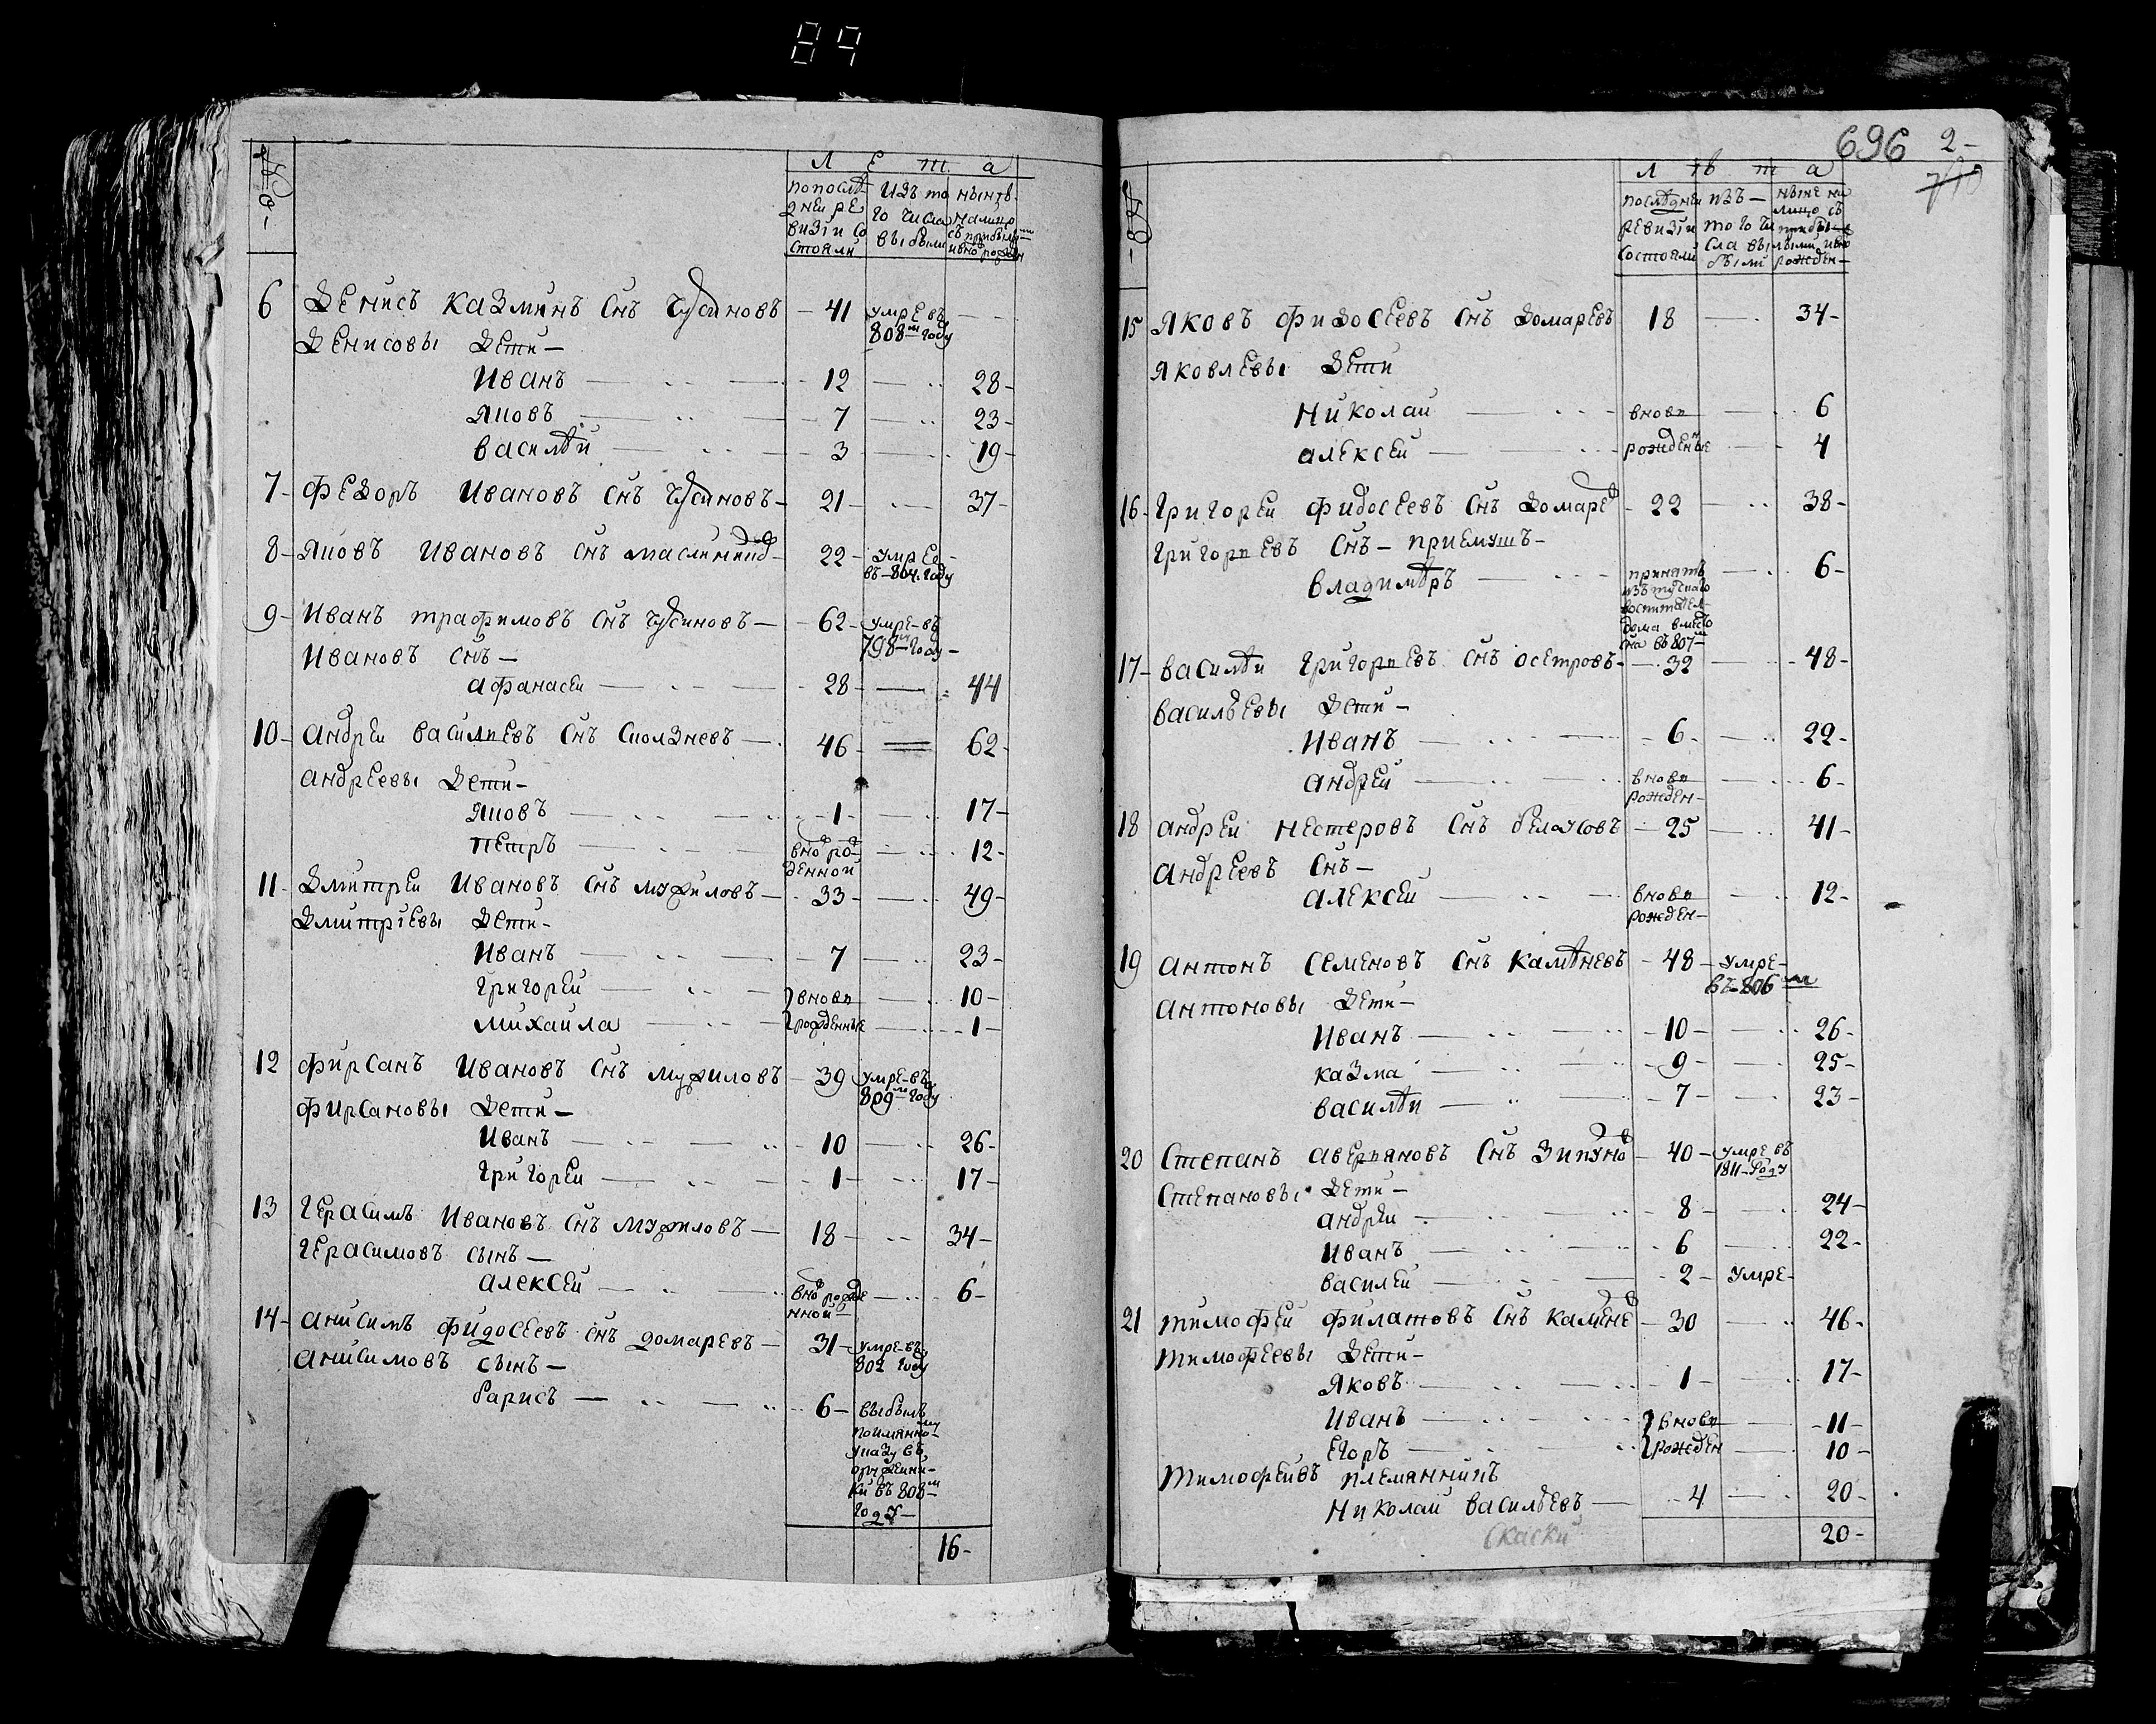 89
№
Л Е т а
по послѣ-
дней ре
визiи со
стояли
изъ то
го числа
выбыли
нынѣ
на лицо
съ прибылы ми
и вно рожден
6 Денисъ казминъ снъ Чусиновъ — 41 умре въ
808 м году
Денисовы дети —
Иванъ 12 28 -
Яковъ 7 23 -
василѣй 3 19 -
7 - федоръ Ивановъ снъ Чусиновъ - 21 - 37 -
8 - Яковъ Ивановъ снъ 22 - умре -
въ - 804. году
9 - Иванъ трафимовъ снъ Чусиновъ — 62 - умре - въ
798 м году -
Ивановъ снъ —
афанасеи 28 - 44
10 - андреи василпевъ снъ Скользневъ — 46 - 62 -
андреевы дети -
Яковъ 1 - 17 -
петръ вно рож
денной 12 -
11 - дмитреи Ивановъ снъ мухиловъ — 33 - 49 -
дмитрiевы дети -
Иванъ 7 23 -
григореи вновп 10 -
михаила рожденые 1 -
12 фирсанъ Ивановъ снъ мухиловъ — 39 умре - въ
809 м году
фирсановы дети —
Иванъ 10 26 -
григореи 1 - 17 -
13 герасимъ Ивановъ снъ мухиловъ — 18 - 34 -
герасимовъ сынъ —
алексеи вно рожде
нной - 6 -
14 - анисимъ фидосеевъ снъ домаревъ — 31 - умре - въ
802 году
анисимовъ сынъ —
барисъ — 6 - выбылъ
поимянно му
указу въ
ки въ 808 м
году -
16 -
696 2 -
№
Л ѣ т а
последнеи
ревизiи
состояли
изъ —
того чи
сла вы
были
ныне на
лицо съ
прибы
лыми и вно
рожден -
15 Яковъ фидосеевъ снъ домаревъ 18 34 -
Яковлевы дети
николаи вновп 6
алексеи рожденые 4
16 - григореи фидосеевъ снъ домарев - 22 38 -
григорпевъ снъ - приемушъ -
владимѣръ принятъ 6 -
изъ тулскаго
воспитател -
дома вместо
сна въ 807 м
17 - василѣи григорпевъ снъ осетровъ — 32 48 -
васильевы дети —
Иванъ 6 - 22 -
андреи вновп
рожден - 6 -
18 андреи нестеровъ снъ белоусовъ — 25 41 -
андреевъ снъ —
алексеи вновп
рожден - 12 -
19 антонъ семеновъ снъ камѣневъ - 48 - умре -
въ - 806 м
антоновы дети —
Иванъ 10 - 26 -
казма 9 - 25 -
василѣи 7 - 23 -
20 степанъ аверпяновъ снъ зипунов - 40 - умре въ
1811 - году
степановы дети —
андреи 8 - 24 -
иванъ 6 22 -
василеи 2 - умре -
21 тимофеи филатовъ снъ каменев - 30 46 -
тимофеевы дети —
Яковъ 1 - 17 -
Иванъ вновп 11 -
егоръ рожден 10 -
тимофеивъ племянникъ
николаи васильевъ — 4 20 -
скаски 20 -